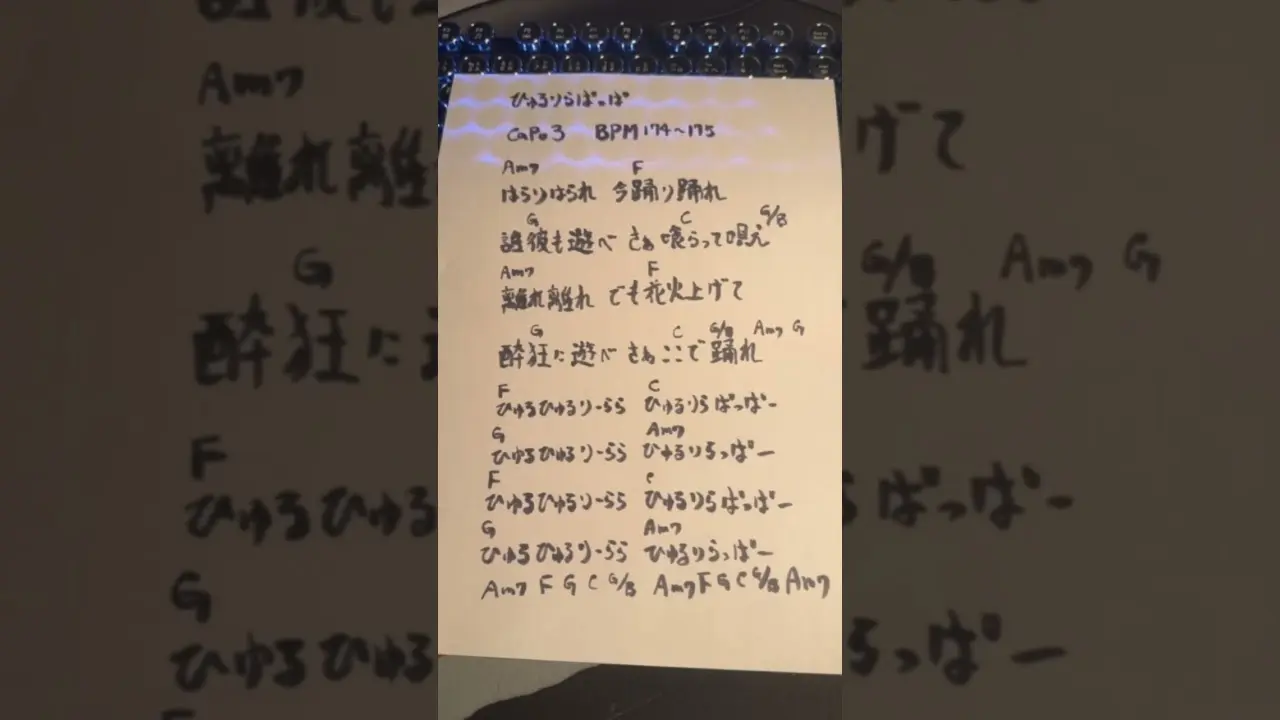 ひゅるりらぱっぱ
CaPo3 BPM174~175
Am7 F
はらりはられ 今踊り踊れ
G C G/B
誰彼も遊べ さぁ喰らって唄え
Am7 F
離れ離れ でも花火上げて
G C G/B Am7 G
酔狂に遊べ さぁここで踊れ
F C
ひゅるひゅるりーらら ひゅるりらぱっぱー
G Am7
ひゅるひゅるりーらら ひゅるりらっぱー
F C
ひゅるひゅるりーらら ひゅるりらぱっぱー
G Am7
ひゅるひゅるりーらら ひゅるりらっぱー
Am7 F G C G/B Am7 F G C G/B Am7